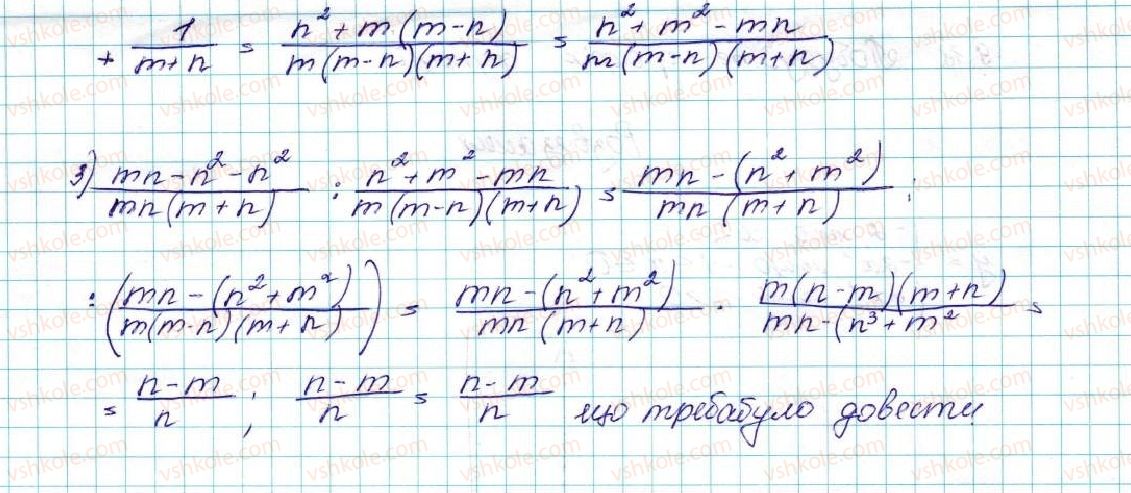 + 1/(m+n) = (n² + m(m-n))/(m(m-n)(m+n)) = (n² + m² - mn)/(m(m-n)(m+n))
3) (mn - n² - n²)/(mn(m+n)) : (n² + m² - mn)/(m(m-n)(m+n)) = (mn - (n² + m²))/(mn(m+n)) :
: ((mn - (n² + m²))/(m(m-n)(m+n))) = (mn - (n² + m²))/(mn(m+n)) · (m(n-m)(m+n))/(mn - (n³ + m²) =
= (n-m)/n ; (n-m)/n = (n-m)/n що требабуло довести